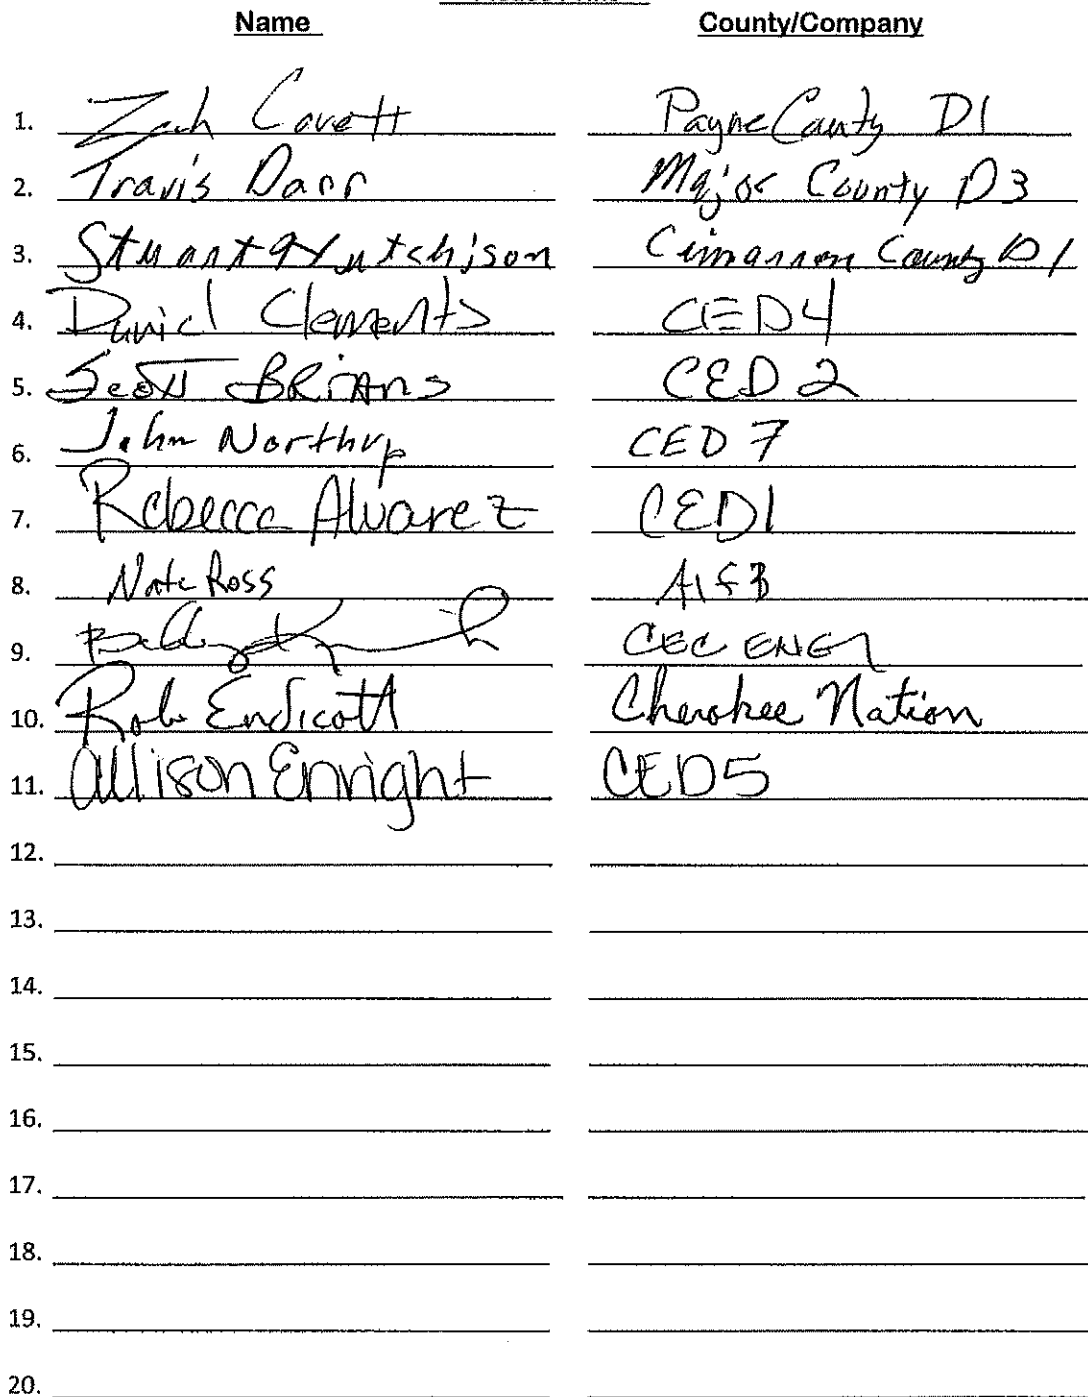 Name County/Company
1. Zach Cavett Payne County D1
2. Travis Darr Major County D3
3. Stuart Hutchison Cimarron County D1
4. Daniel Clements CED4
5. Scott BRiANs CED 2
6. John Northup CED 7
7. Rebecca Alvarez CED1
8. Nate Ross
9. CEC ENGR
10. Rob Endicott Cherokee Nation
11. Allison Enright CED5
12.
13.
14.
15.
16.
17.
18.
19.
20.